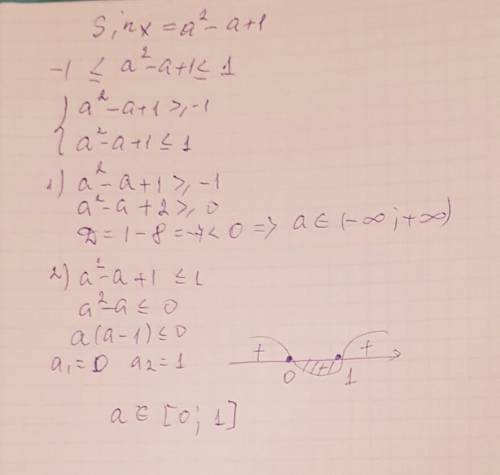 Sinx = a² - a + 1
-1 ≤ a² - a + 1 ≤ 1
{ a² - a + 1 ≥ -1
{ a² - a + 1 ≤ 1
1) a² - a + 1 ≥ -1
a² - a + 2 ≥ 0
D = 1 - 8 = -7 < 0 => a ∈ (-∞; +∞)
2) a² - a + 1 ≤ 1
a² - a ≤ 0
a(a-1) ≤ 0
a₁ = 0 a₂ = 1
+ +
0 1
a ∈ [0; 1]